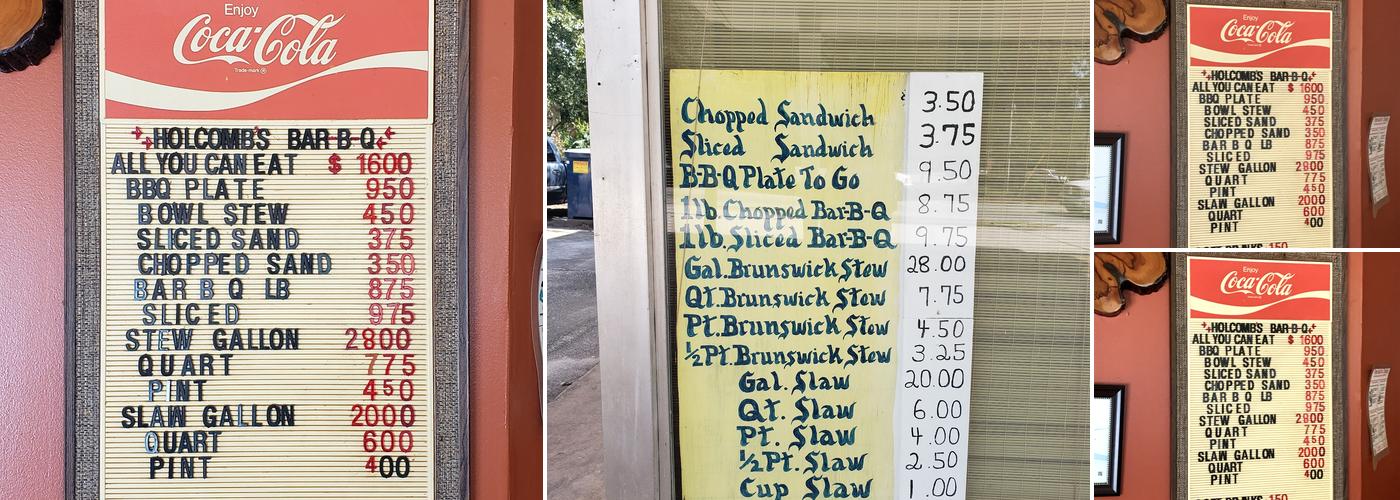 Enjoy
Coca-Cola
Trade-mark ®
HOLCOMB'S BAR-B-Q
ALL YOU CAN EAT $ 1600
BBQ PLATE 950
BOWL STEW 450
SLICED SAND 375
CHOPPED SAND 350
BAR B Q LB 875
SLICED 975
STEW GALLON 2800
QUART 775
PINT 450
SLAW GALLON 2000
QUART 600
PINT 400
Chopped Sandwich 3.50
Sliced Sandwich 3.75
B-B-Q Plate To Go 9.50
1 lb. Chopped Bar-B-Q 8.75
1 lb. Sliced Bar-B-Q 9.75
Gal. Brunswick Stew 28.00
Qt. Brunswick Stew 7.75
Pt. Brunswick Stew 4.50
½ Pt. Brunswick Stew 3.25
Gal. Slaw 20.00
Qt. Slaw 6.00
Pt. Slaw 4.00
½ Pt. Slaw 2.50
Cup Slaw 1.00
Enjoy
Coca-Cola
HOLCOMB'S BAR-B-Q
ALL YOU CAN EAT $ 1600
BBQ PLATE 950
BOWL STEW 450
SLICED SAND 375
CHOPPED SAND 350
BAR B Q LB 875
SLICED 975
STEW GALLON 2800
QUART 775
PINT 450
SLAW GALLON 2000
QUART 600
PINT 400
Enjoy
Coca-Cola
HOLCOMB'S BAR-B-Q
ALL YOU CAN EAT $ 1600
BBQ PLATE 950
BOWL STEW 450
SLICED SAND 375
CHOPPED SAND 350
BAR B Q LB 875
SLICED 975
STEW GALLON 2800
QUART 775
PINT 450
SLAW GALLON 2000
QUART 600
PINT 400